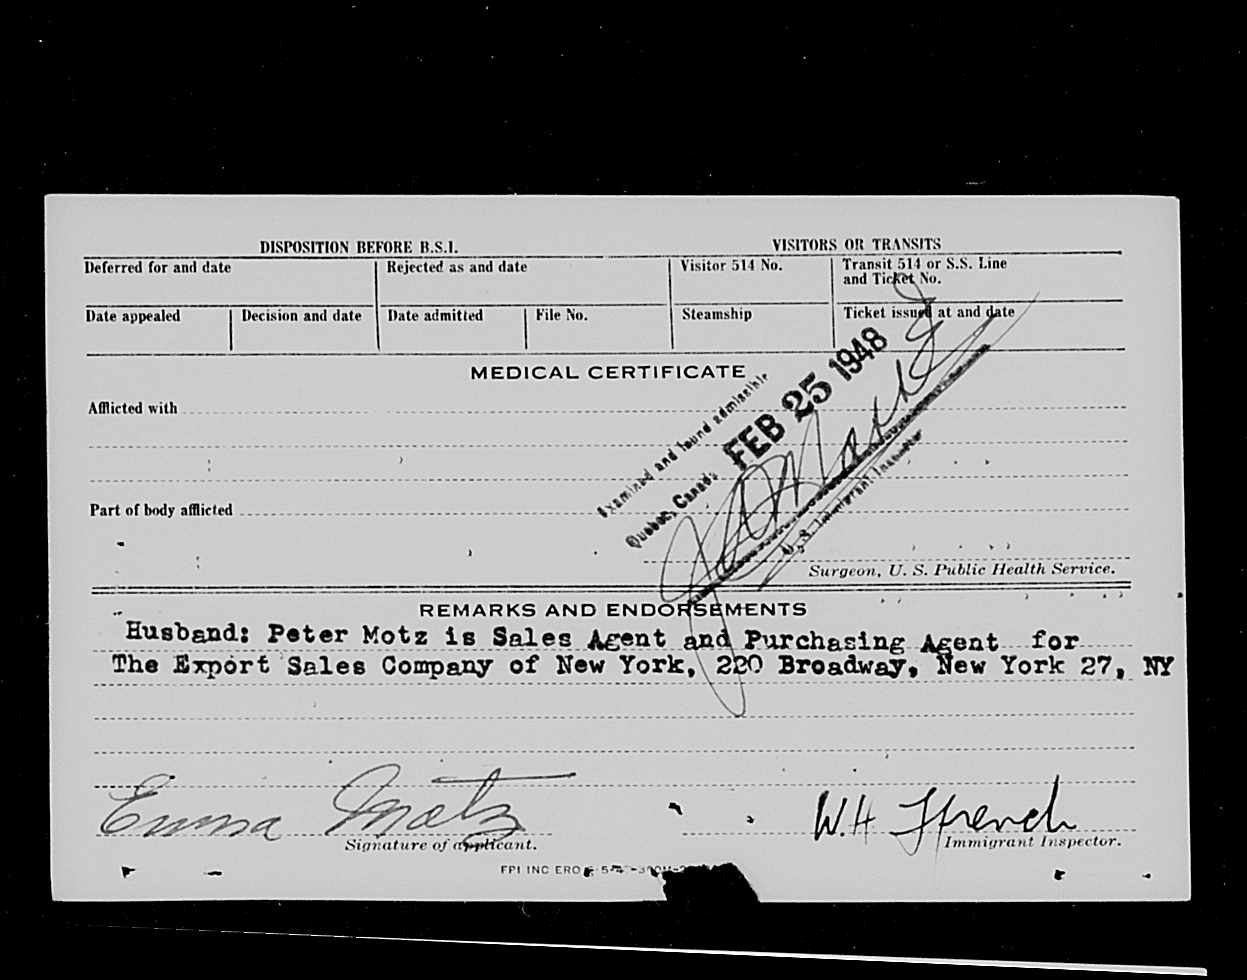 DISPOSITION BEFORE B.S.I.
VISITORS OR TRANSITS
Deferred for and date
Rejected as and date
Visitor 514 No.
Transit 514 or S.S. Line
and Ticket No.
Date appealed
Decision and date
Date admitted
File No.
Steamship
Ticket issued at and date
MEDICAL CERTIFICATE
Afflicted with
Examined and found admissible
Quebec, Canada FEB 25 1948
U.S. Immigrant Inspector
Part of body afflicted
Surgeon, U. S. Public Health Service.
REMARKS AND ENDORSEMENTS
Husband: Peter Motz is Sales Agent and Purchasing Agent for
The Export Sales Company of New York, 220 Broadway, New York 27, NY
Emma Motz
W.H Ffrench
Signature of applicant.
Immigrant Inspector.
FPI INC ERO